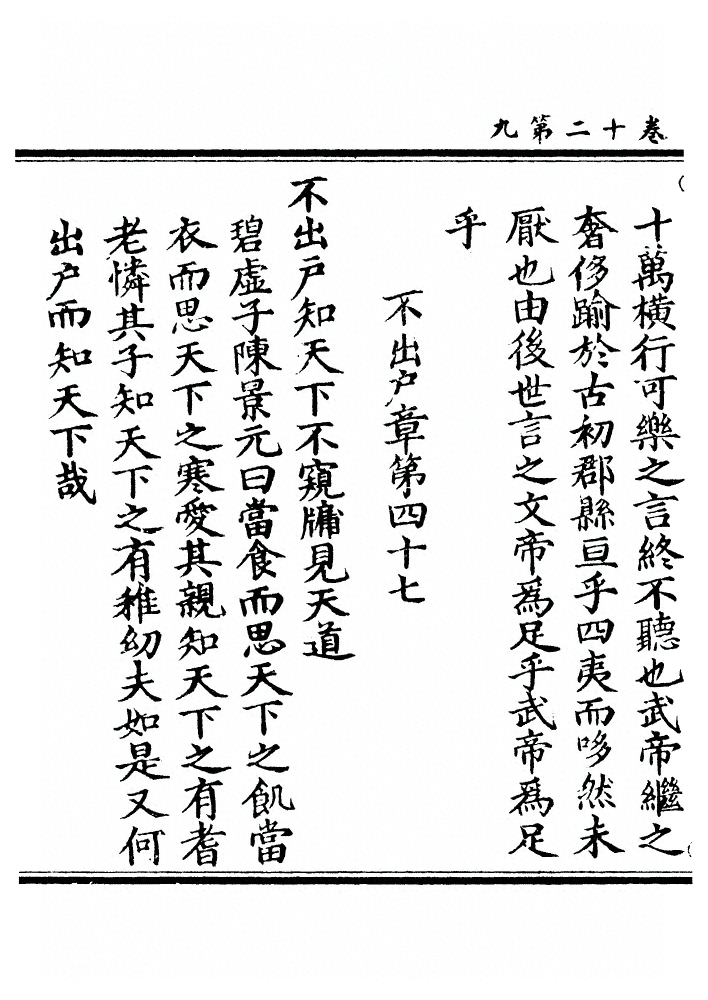 卷十二第九
十萬橫行可樂之言終不聽也武帝繼之
奢侈踰於古初郡縣亘乎四夷而哆然未
厭也由後世言之文帝爲足乎武帝爲足
乎
不出户章第四十七
不出户知天下不窺牖見天道
碧虛子陳景元曰當食而思天下之飢當
衣而思天下之寒愛其親知天下之有耆
老憐其子知天下之有稚幼夫如是又何
出户而知天下哉